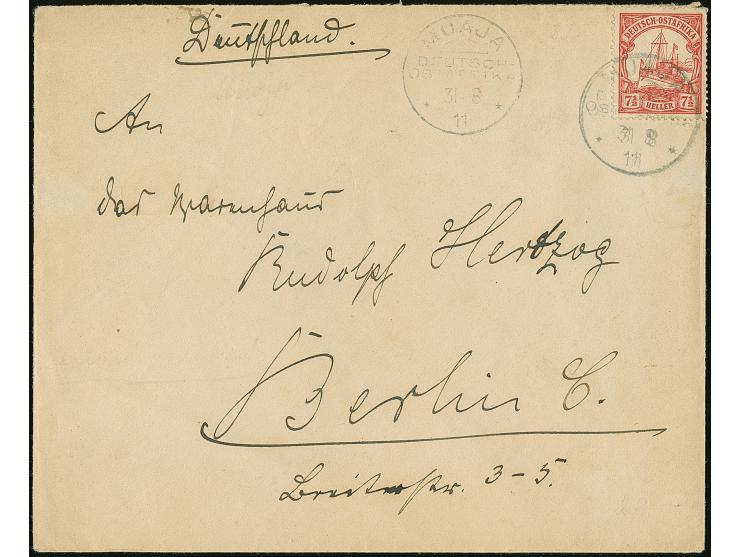 Deutschland.
MUAJA
DEUTSCH-
OSTAFRIKA
* 31 8 *
11
DEUTSCH-OSTAFRIKA
7½ HELLER 7½
* 31 8 *
11
An
das Warenhaus
Rudolph Hertzog
Berlin C.
Breitestr. 3-5.